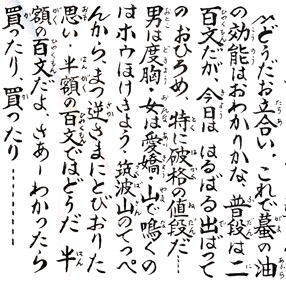 〽どうだお立合い、これで蟇の油
の効能はおわかりかな、普段は二
百文だが、今日は はるばる出ばって
の おひろめ、特に破格の値段だ……
男は度胸・女は愛嬌・山で鳴くの
はホウほけきよう、筑波山のてっぺ
んから、まっ逆さまにとびおりた
思い、半額の百文ではどうだ 半
額の百文だよ、さあーわかったら
買ったり、買ったり………